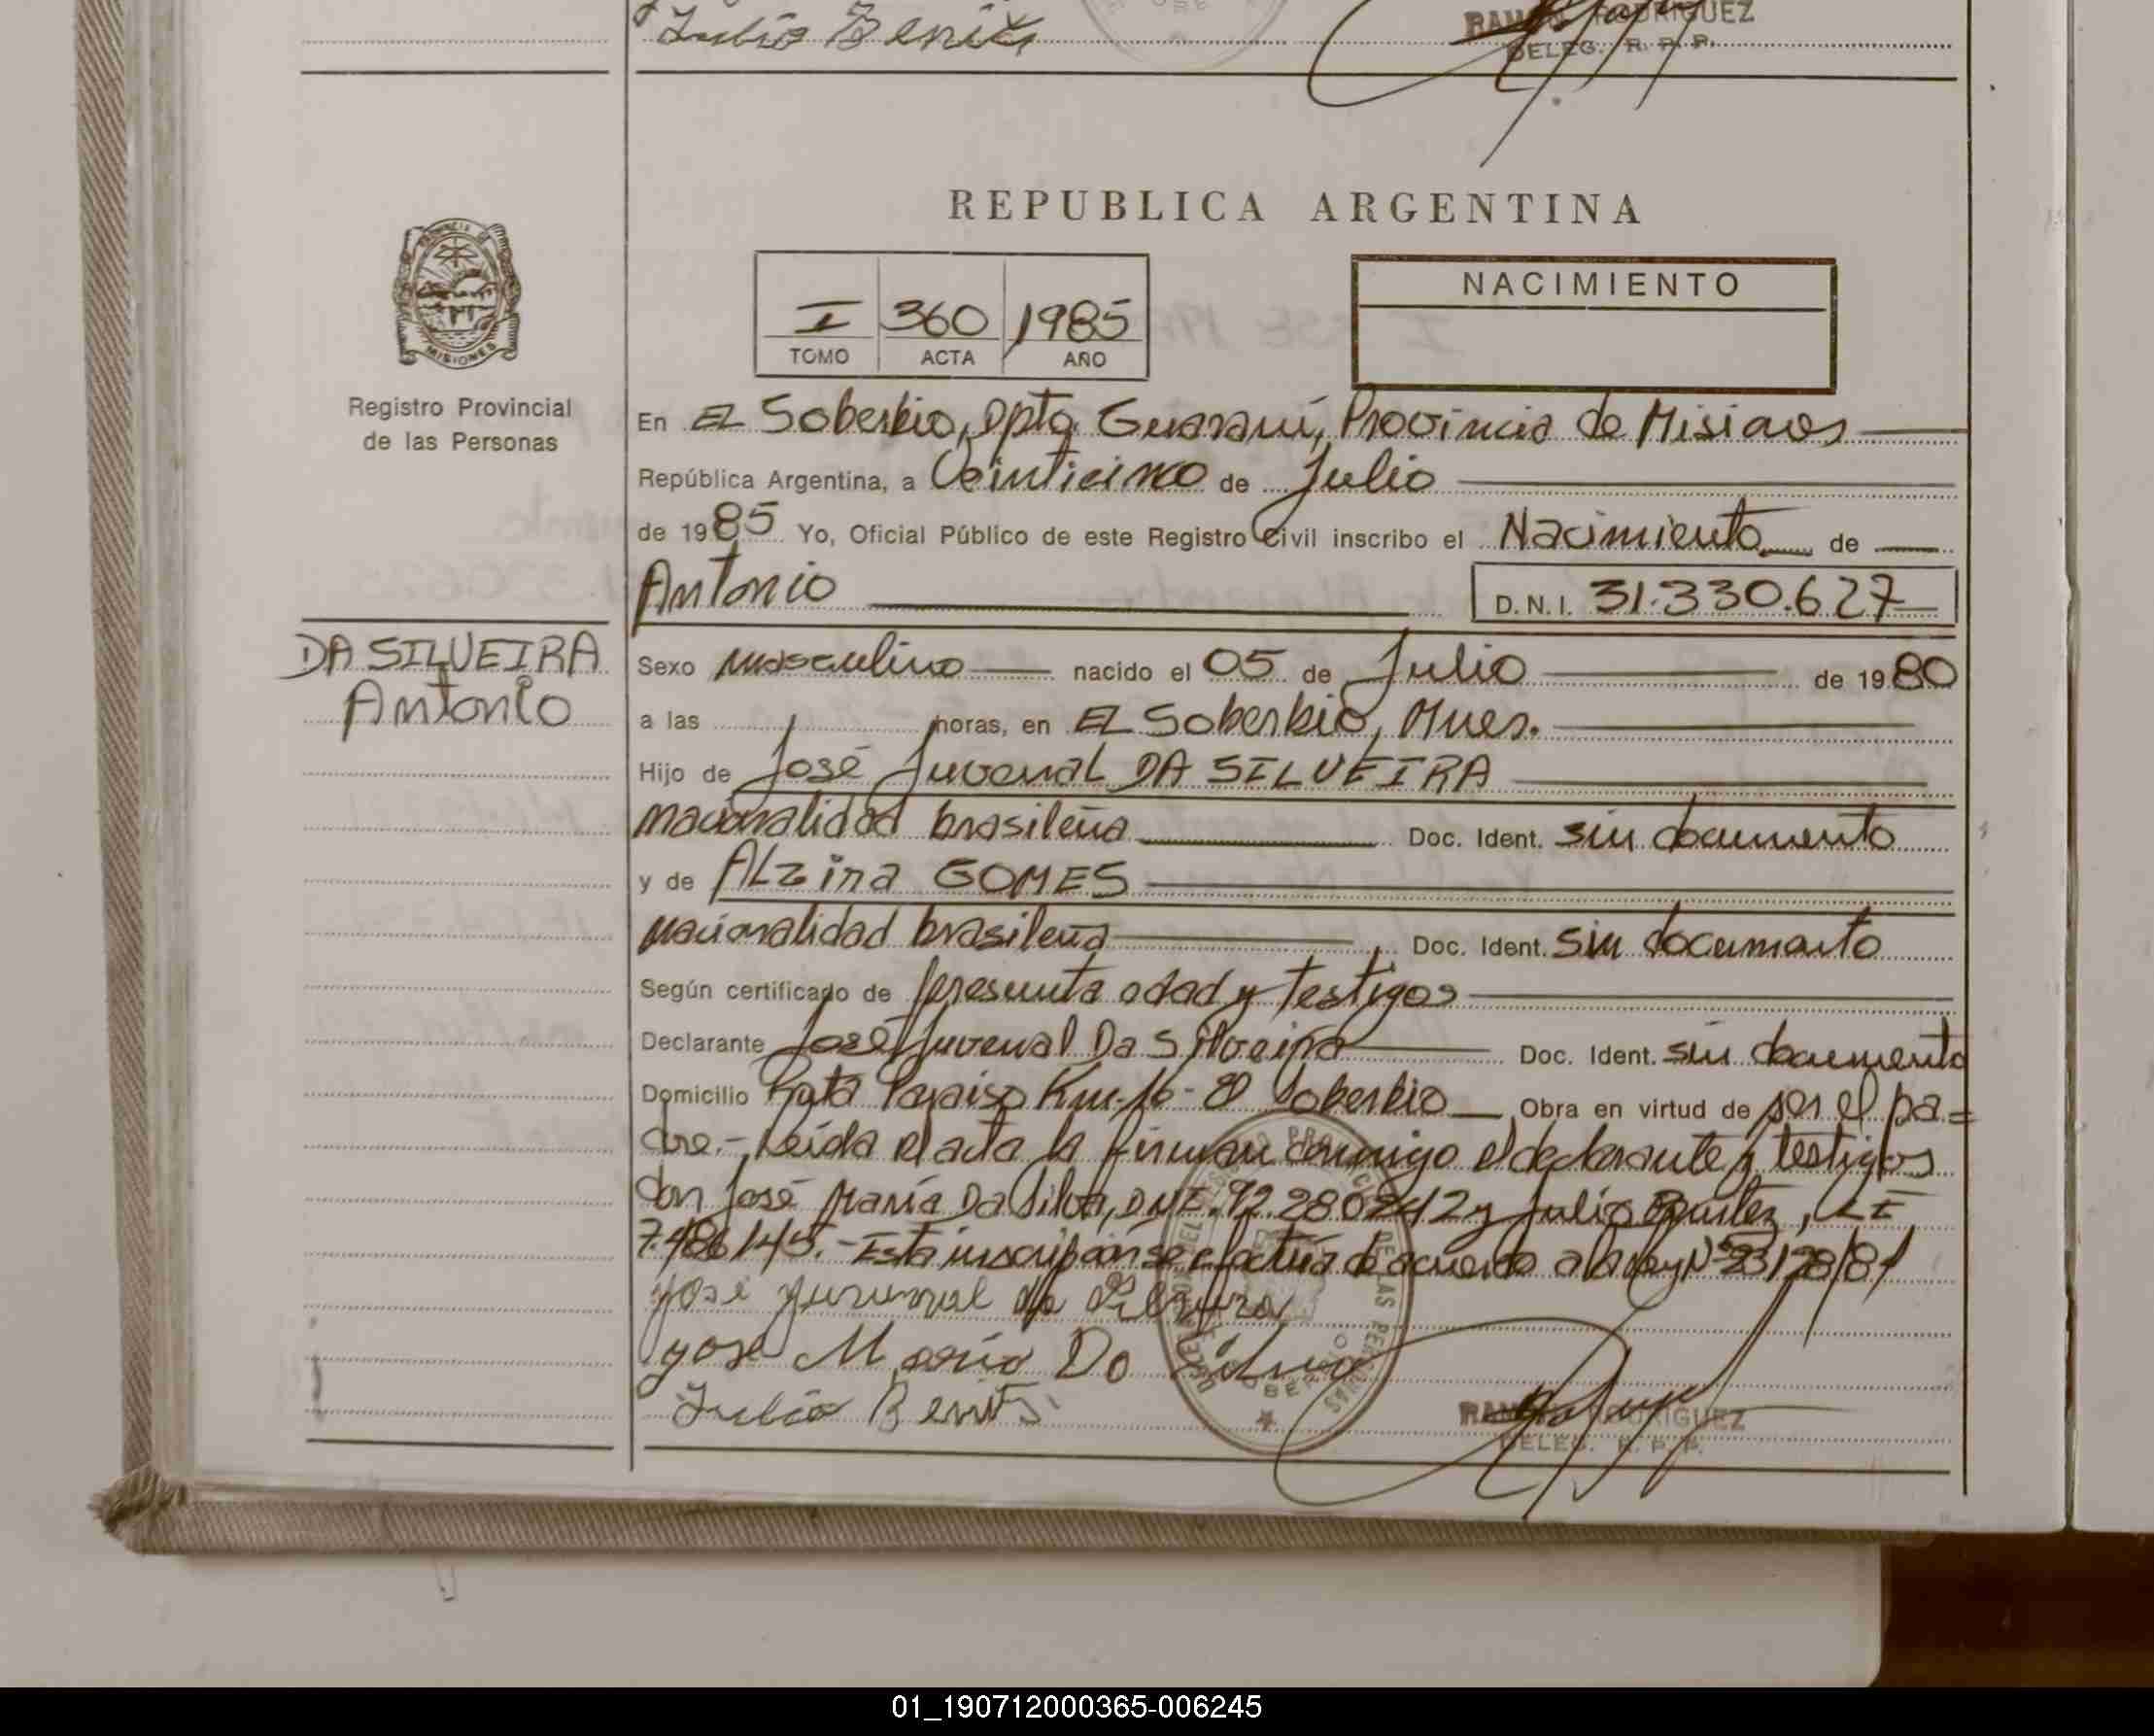 Julio Benites
RAMON RODRIGUEZ
DELEG. R. P. P.
REPUBLICA ARGENTINA
PROVINCIA DE
MISIONES
Registro Provincial
de las Personas
I 360 1985
TOMO ACTA AÑO
NACIMIENTO
En EL Soberbio, Dpto. Guaraní, Provincia de Misiones
República Argentina, a Veinticinco de Julio
de 1985 Yo, Oficial Público de este Registro Civil inscribo el Nacimiento de
Antonio D.N.I. 31.330.627
DA SILVEIRA
Antonio
Sexo masculino nacido el 05 de Julio de 1980
a las horas, en EL Soberbio, Mnes.
Hijo de José Juvenal DA SILVEIRA
nacionalidad brasileña Doc. Ident. sin documento
y de ALzira GOMES
nacionalidad brasileña Doc. Ident. sin documento
Según certificado de presunta edad y testigos
Declarante José Juvenal Da Silveira Doc. Ident. sin documento
Domicilio Ruta Paraiso Km.16- El Soberbio Obra en virtud de ser el pa=
dre.- Leída el acta la firman conmigo el declarante y testigos
don José María Da Silva, DNI. 92.280242 y Julio Benitez, LE
7.486145.- Esta inscripción se efectúa de acuerdo a la ley Nº 23128/84
jose juvenal da Silveira
jose Mario Da Silva
Julio Benites
RAMON RODRIGUEZ
DELEG. R. P. P.
01_190712000365-006245